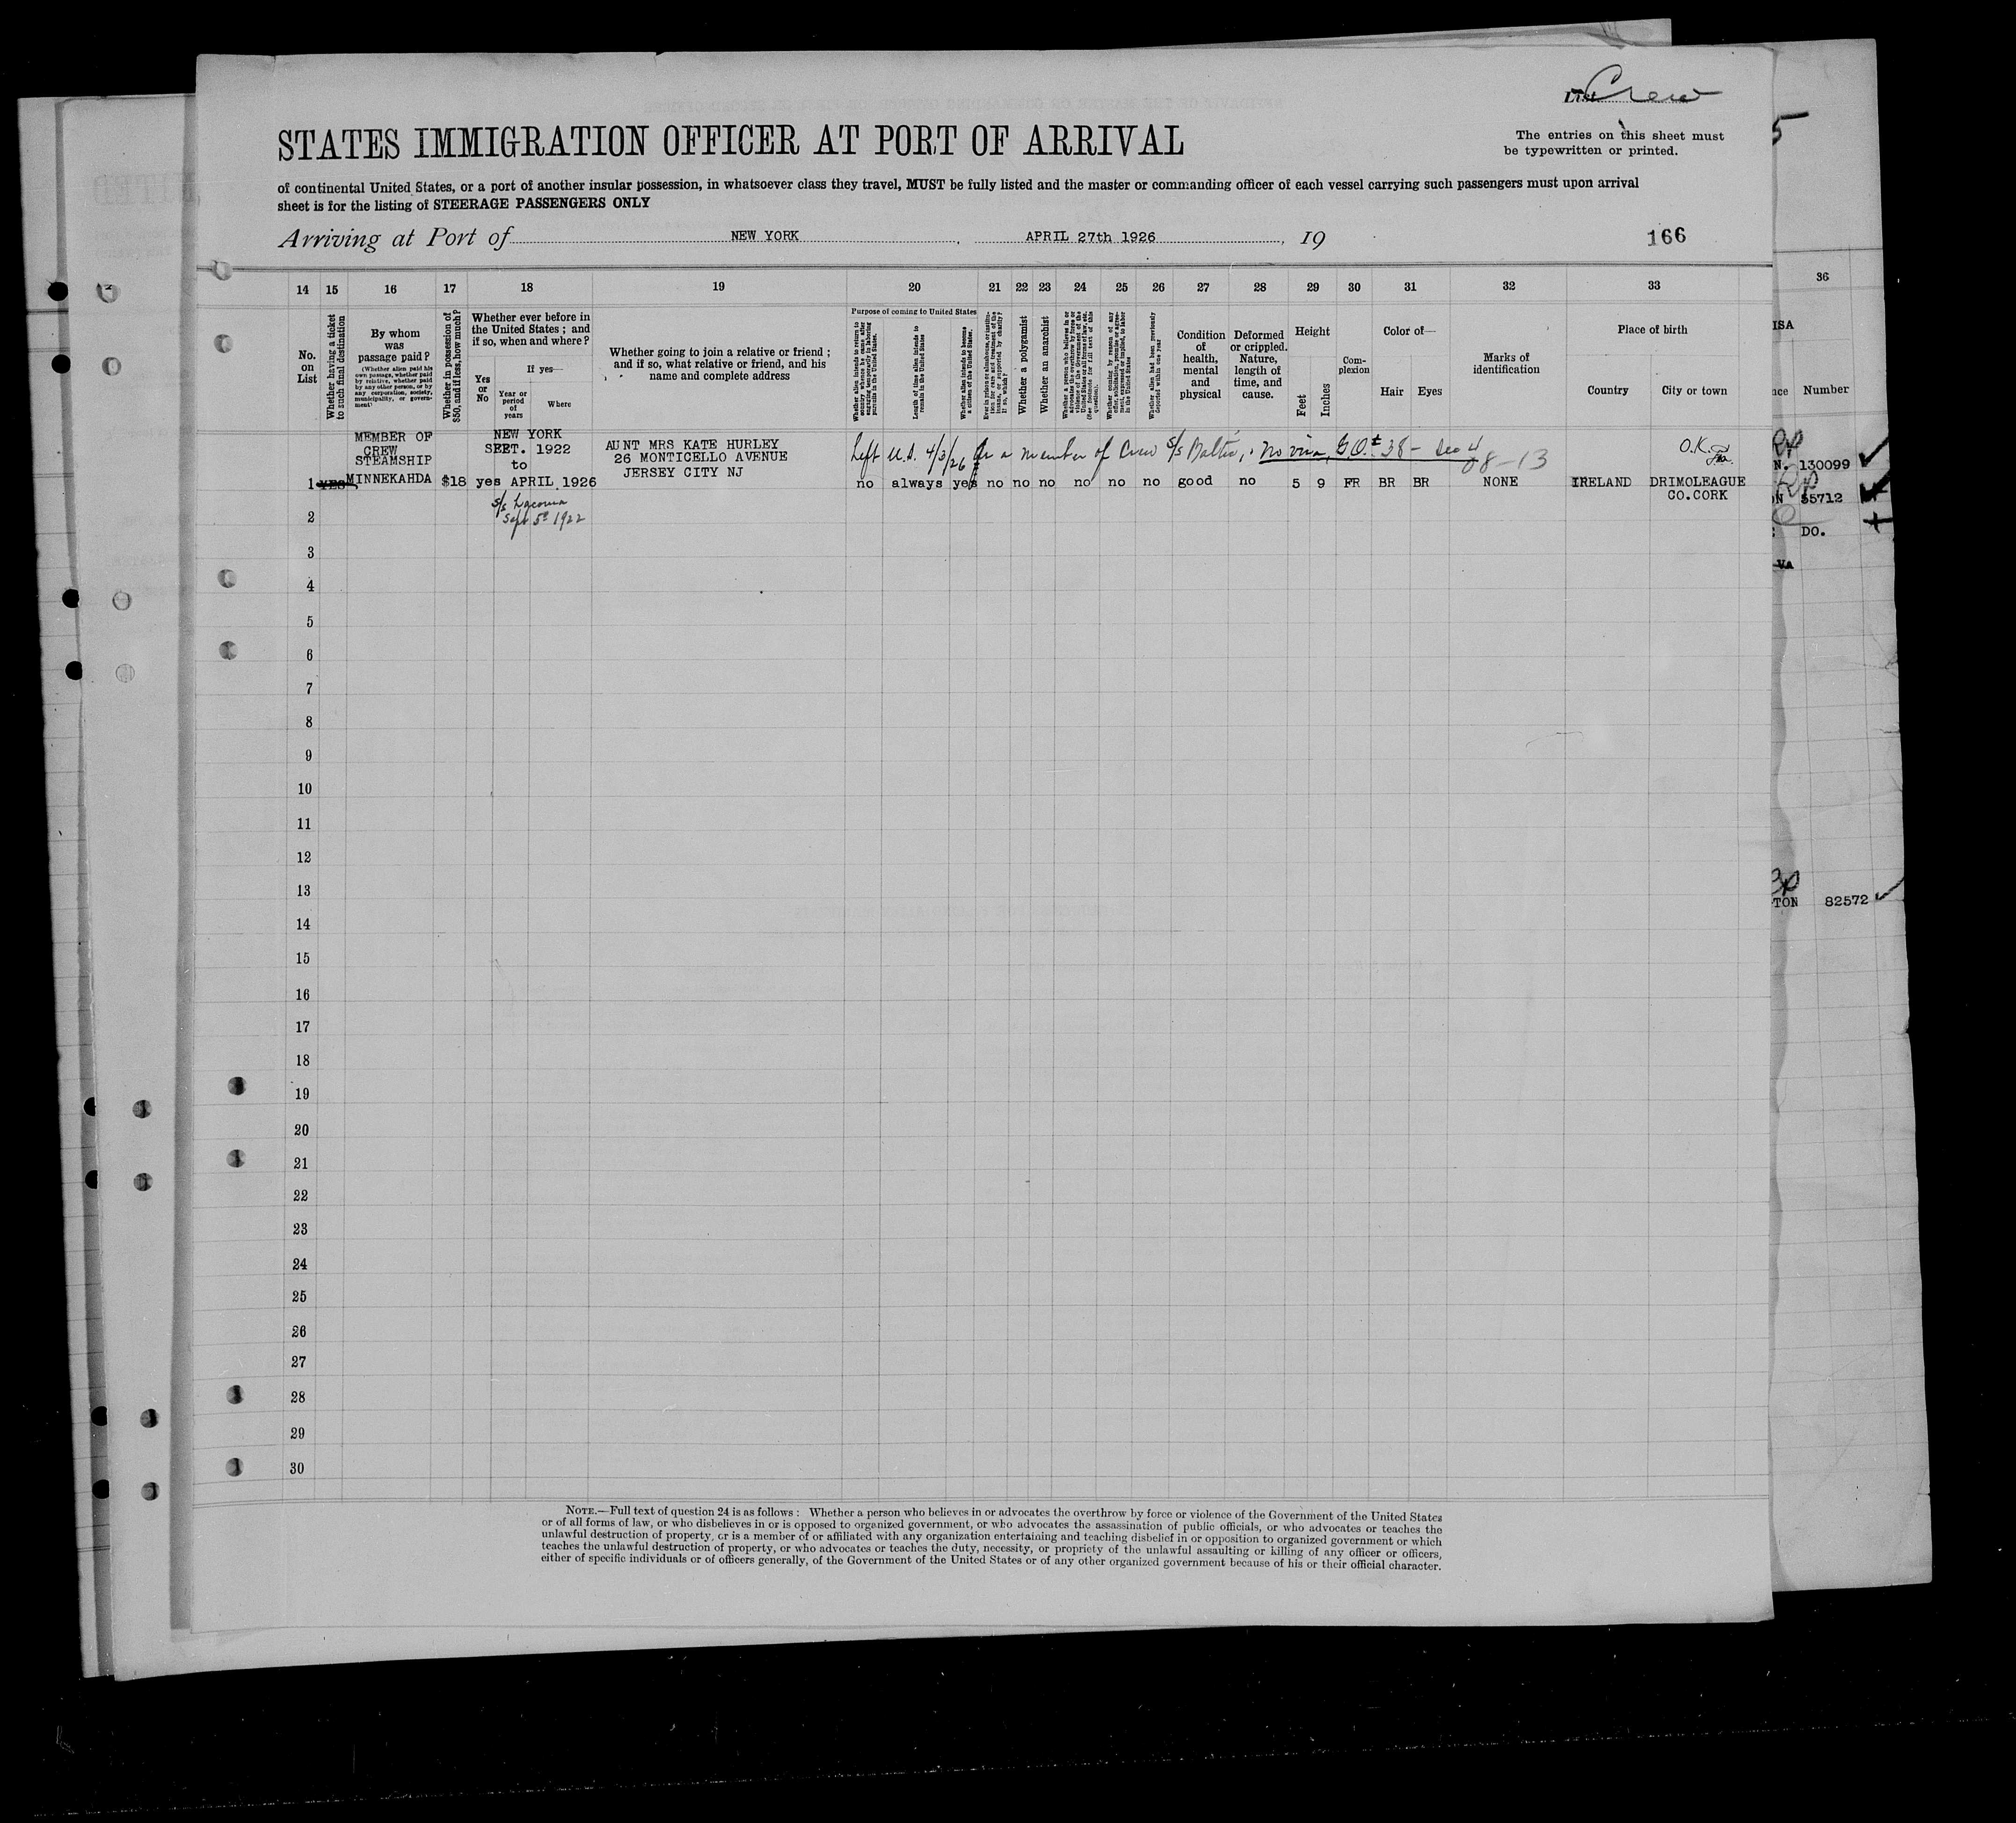 List Crew
STATES IMMIGRATION OFFICER AT PORT OF ARRIVAL
The entries on this sheet must
be typewritten or printed.
of continental United States, or a port of another insular possession, in whatsoever class they travel, MUST be fully listed and the master or commanding officer of each vessel carrying such passengers must upon arrival
sheet is for the listing of STEERAGE PASSENGERS ONLY
Arriving at Port of NEW YORK, APRIL 27th 1926, 19
166
14 15 16 17 18 19 20 21 22 23 24 25 26 27 28 29 30 31 32 33
36
No.
on
List
Whether having a ticket
to such final destination
By whom
was
passage paid?
(Whether alien paid his
own passage, whether paid
by relative, whether paid
by any other person, or by
any corporation, society,
municipality, or govern-
ment)
Whether in possession of
$50, and if less, how much?
Whether ever before in
the United States; and
if so, when and where?
Yes
or
No
If yes—
Year or
period
of
years
Where
Whether going to join a relative or friend;
and if so, what relative or friend, and his
name and complete address
Purpose of coming to United States
Whether alien intends to return to
country whence he came after
engaging temporarily in laboring
pursuits in the United States.
Length of time alien intends to
remain in the United States
Whether alien intends to become
a citizen of the United States.
Ever in prison or almshouse, or institu-
tion for care and treatment of the
insane, or supported by charity?
If so, which?
Whether a polygamist
Whether an anarchist
Whether a person who believes in or
advocates the overthrow by force or
violence of the Government of the
United States or all forms of law, etc.
(See footnote for full text of this
question).
Whether coming by reason of any
offer, solicitation, promise or agree-
ment, expressed or implied, to labor
in the United States
Whether alien had been previously
deported within one year
Condition
of
health,
mental
and
physical
Deformed
or crippled.
Nature,
length of
time, and
cause.
Height
Feet
Inches
Com-
plexion
Color of—
Hair
Eyes
Marks of
identification
Place of birth
Country
City or town
ISA
nce
Number
MEMBER OF
CREW
STEAMSHIP
MINNEKAHDA
NEW YORK
SEPT. 1922
to
APRIL 1926
AUNT MRS KATE HURLEY
26 MONTICELLO AVENUE
JERSEY CITY NJ
Left U.S. 4/3/26 as a member of Crew S/S Baltic, . No visa, G.O. 38 - Sec 4
08-13
O.K.
1 YES $18 yes no always yes no no no no no no good no 5 9 FR BR BR NONE IRELAND DRIMOLEAGUE
CO.CORK
Sept 5 1922
N. 130099
N 55712
DO.
VA
TON 82572
2
3
4
5
6
7
8
9
10
11
12
13
14
15
16
17
18
19
20
21
22
23
24
25
26
27
28
29
30
NOTE.—Full text of question 24 is as follows: Whether a person who believes in or advocates the overthrow by force or violence of the Government of the United States
or of all forms of law, or who disbelieves in or is opposed to organized government, or who advocates the assassination of public officials, or who advocates or teaches the
unlawful destruction of property, or is a member of or affiliated with any organization entertaining and teaching disbelief in or opposition to organized government or which
teaches the unlawful destruction of property, or who advocates or teaches the duty, necessity, or propriety of the unlawful assaulting or killing of any officer or officers,
either of specific individuals or of officers generally, of the Government of the United States or of any other organized government because of his or their official character.